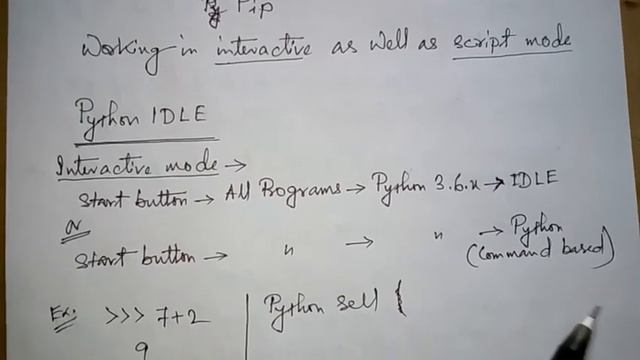 By Pip
Working in interactive as well as script mode
Python IDLE
Interactive mode →
Start button → All Programs → Python 3.6.x → IDLE
or
Start button → " → " → Python
(Command based)
Ex. >>> 7+2 | Python sell {
9